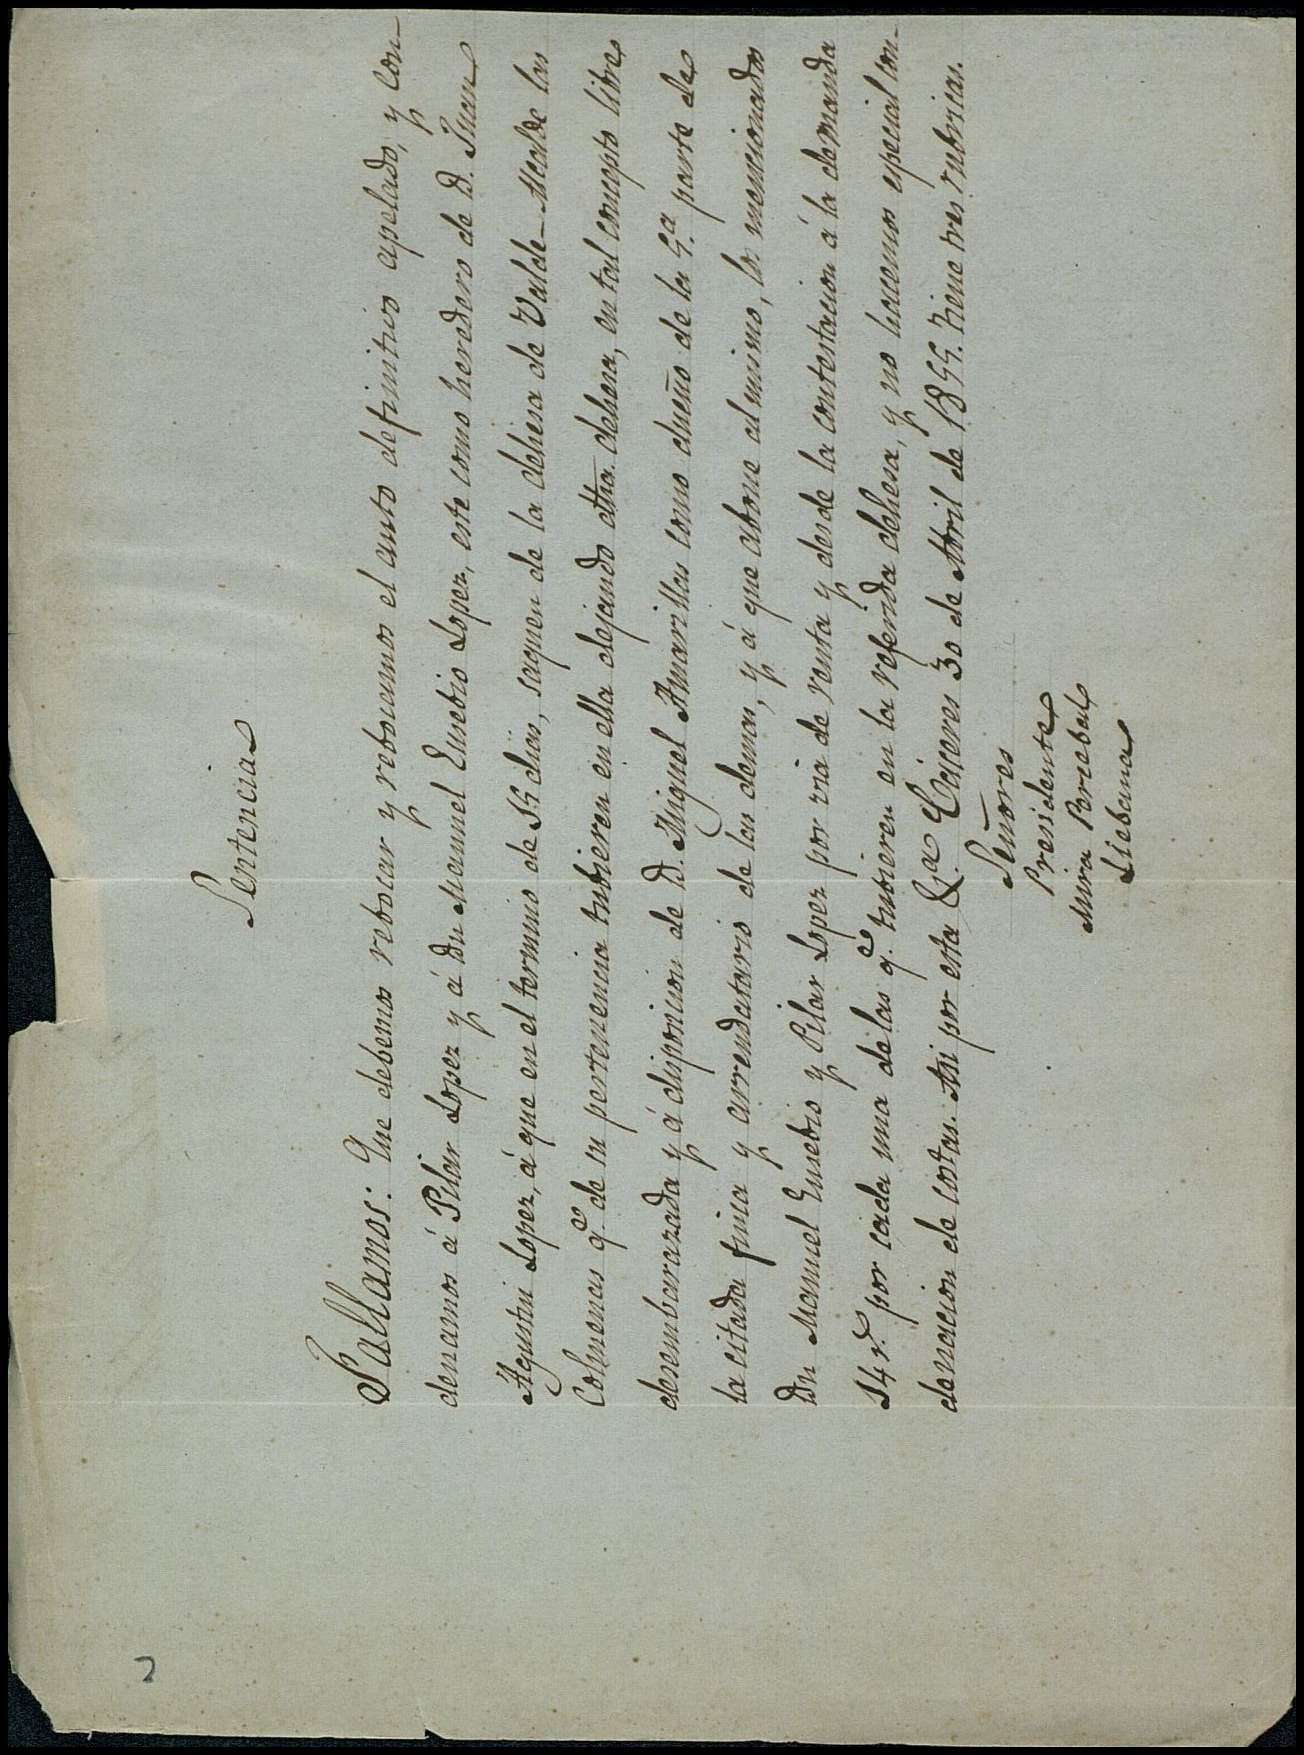 Sentencia
Fallamos: Que debemos rebocar y rebocamos el auto definitivo apelado, y con-
denamos á Pilar Lopez y á Dn Manuel Eusebio Lopez, este como heredero de D. Juan
Agustin Lopez, á que en el termino de 15 dias, saquen de la dehesa de Valde-Alcalde las
Colmenas qe de su pertenencia tubieren en ella dejando dha. dehesa, en tal concepto libre
desembarazada y á disposicion de D. Miguel Amarillas como dueño de la 5.ª parte de
la citada finca y arrendatario de las demas, y á que abone al mismo, los mencionados
Dn Manuel Eusebio y Pilar Lopez por via de renta y desde la contestacion á la demanda
14 r.s por cada una de las q.e tubieren en la referida dehesa, y no hacemos especial con-
denacion de costas. Asi por esta &a Cáceres 30 de Abril de 1855. Tiene tres rubricas.
Señores
Presidente
Mira Percebal
Liebana
2